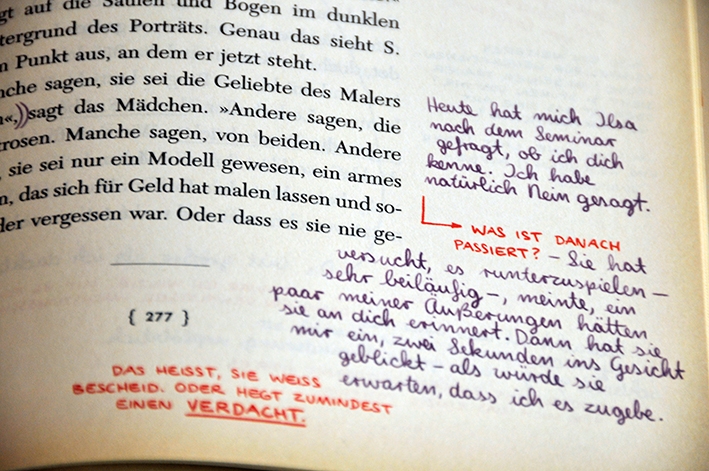 gt auf die Säulen und Bogen im dunklen
tergrund des Porträts. Genau das sieht S.
n Punkt aus, an dem er jetzt steht.
nche sagen, sie sei die Geliebte des Malers
n«, sagt das Mädchen. »Andere sagen, die
trosen. Manche sagen, von beiden. Andere
, sie sei nur ein Modell gewesen, ein armes
n, das sich für Geld hat malen lassen und so-
der vergessen war. Oder dass es sie nie ge-
{ 277 }
Heute hat mich Ilsa
nach dem Seminar
gefragt, ob ich dich
kenne. Ich habe
natürlich Nein gesagt.
WAS IST DANACH
PASSIERT? – Sie hat
versucht, es runterzuspielen –
sehr beiläufig –, meinte, ein
paar meiner Äußerungen hätten
sie an dich erinnert. Dann hat sie
mir ein, zwei Sekunden ins Gesicht
geblickt – als würde sie
erwarten, dass ich es zugebe.
DAS HEISST, SIE WEISS
BESCHEID. ODER HEGT ZUMINDEST
EINEN VERDACHT.